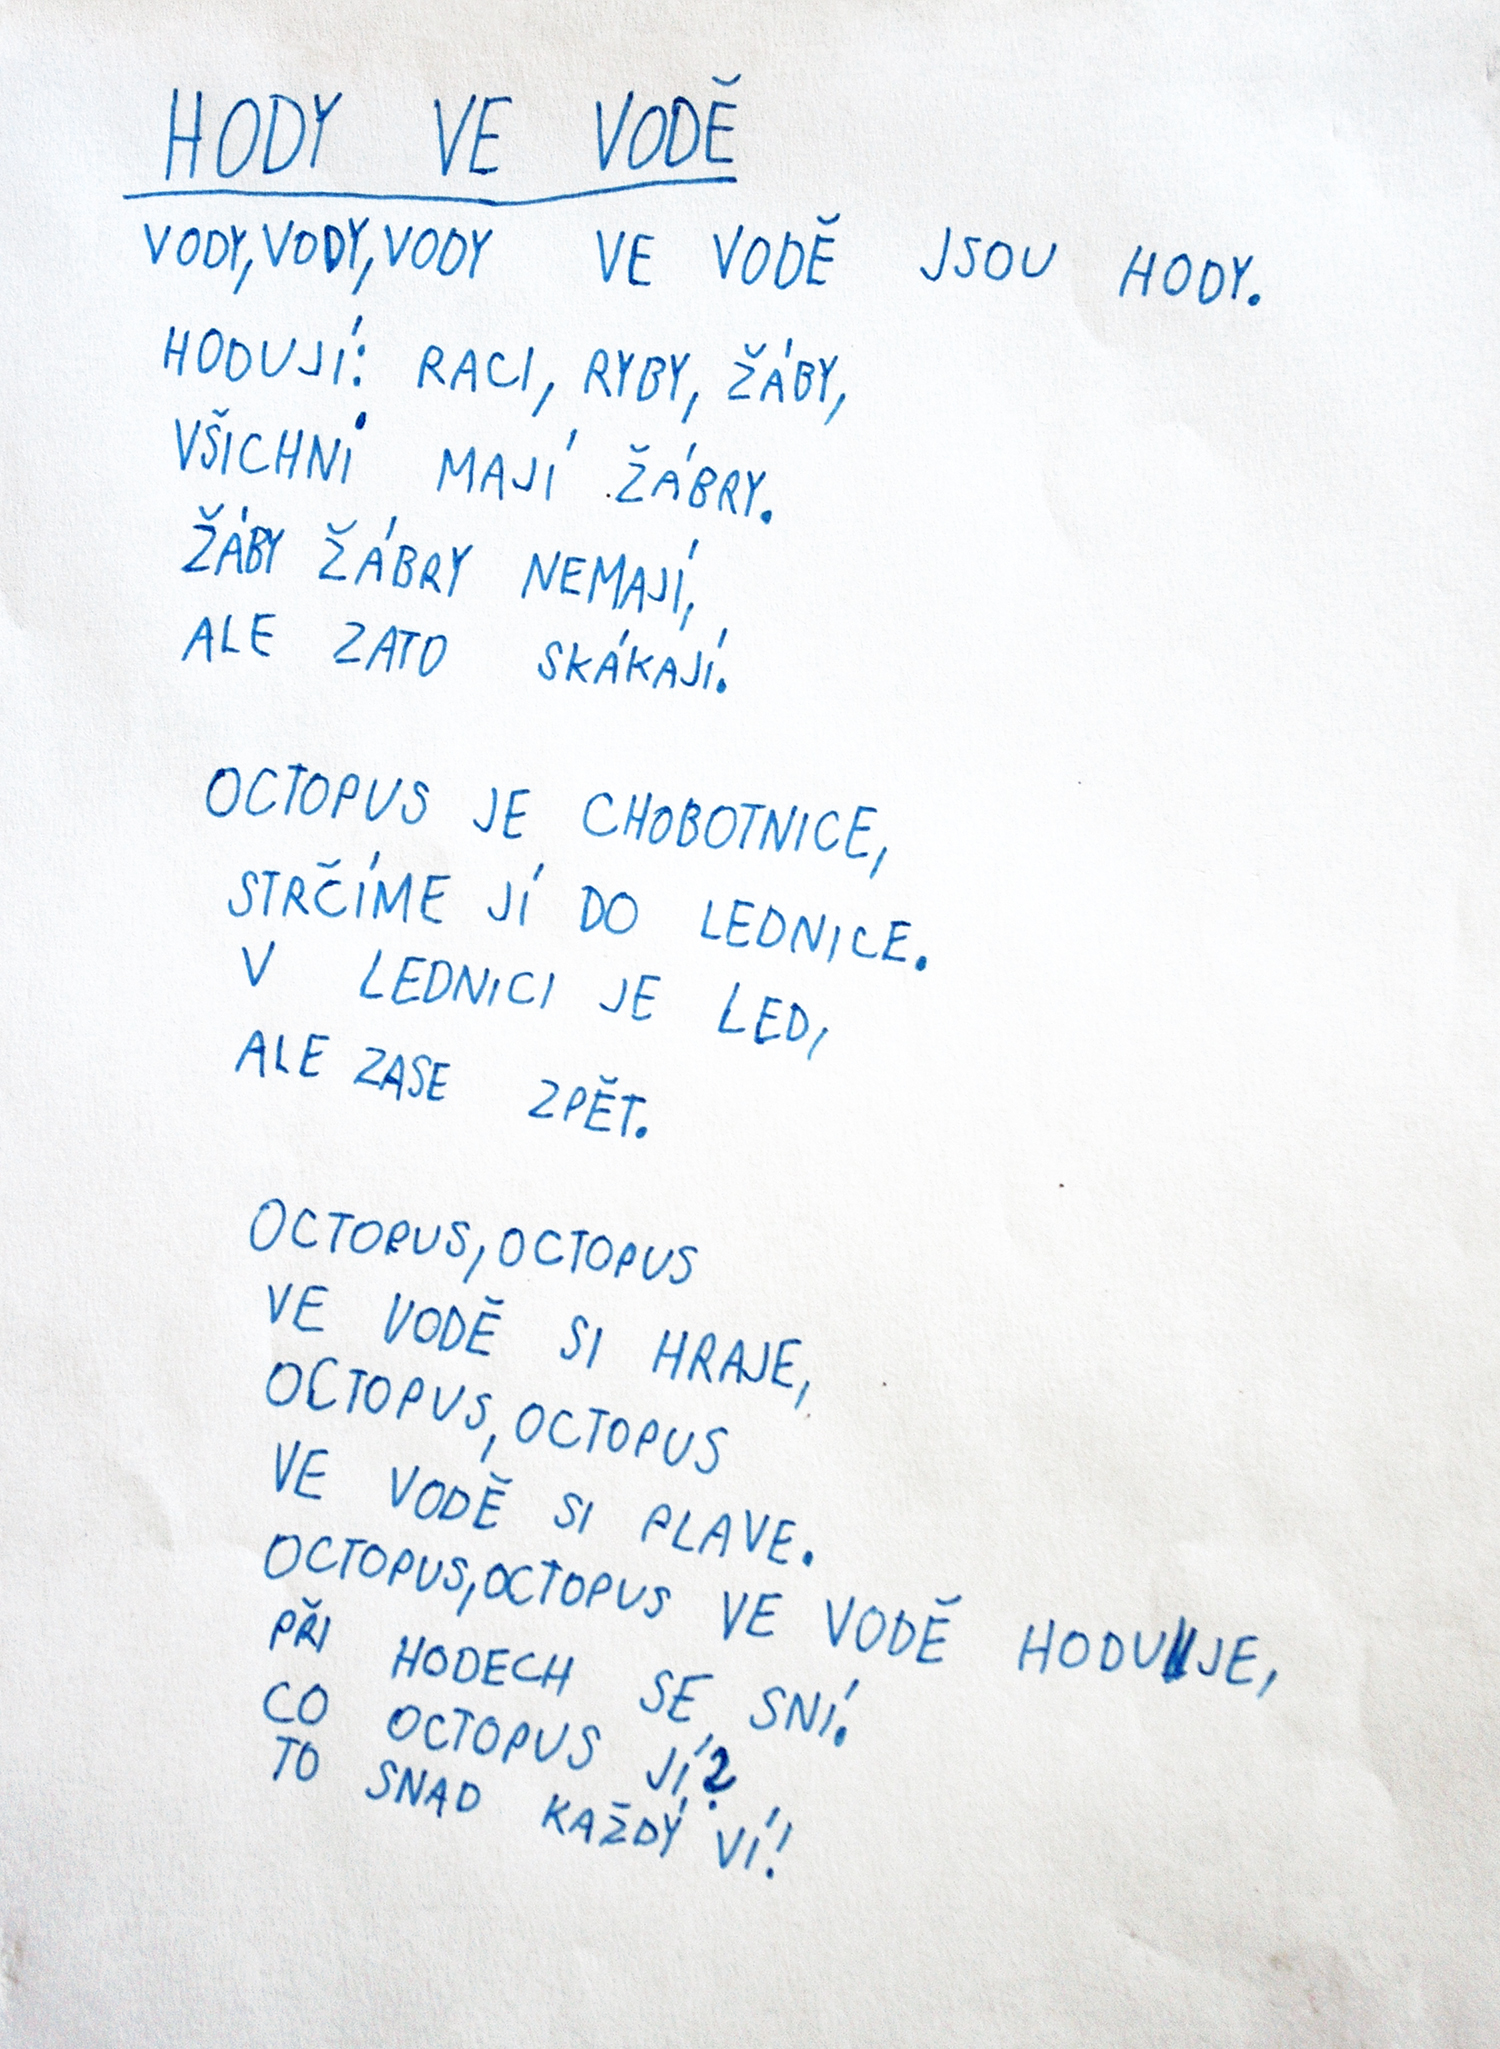 HODY VE VODĚ
VODY, VODY, VODY VE VODĚ JSOU HODY.
HODUJÍ: RACI, RYBY, ŽÁBY,
VŠICHNI MAJÍ ŽÁBRY.
ŽÁBY ŽÁBRY NEMAJÍ,
ALE ZATO SKÁKAJÍ.
OCTOPUS JE CHOBOTNICE,
STRČÍME JÍ DO LEDNICE.
V LEDNICI JE LED,
ALE ZASE ZPĚT.
OCTOPUS, OCTOPUS
VE VODĚ SI HRAJE,
OCTOPUS, OCTOPUS
VE VODĚ SI PLAVE.
OCTOPUS, OCTOPUS VE VODĚ HODUJE,
PŘI HODECH SE SNÍ.
CO OCTOPUS JÍ?
TO SNAD KAŽDÝ VÍ!